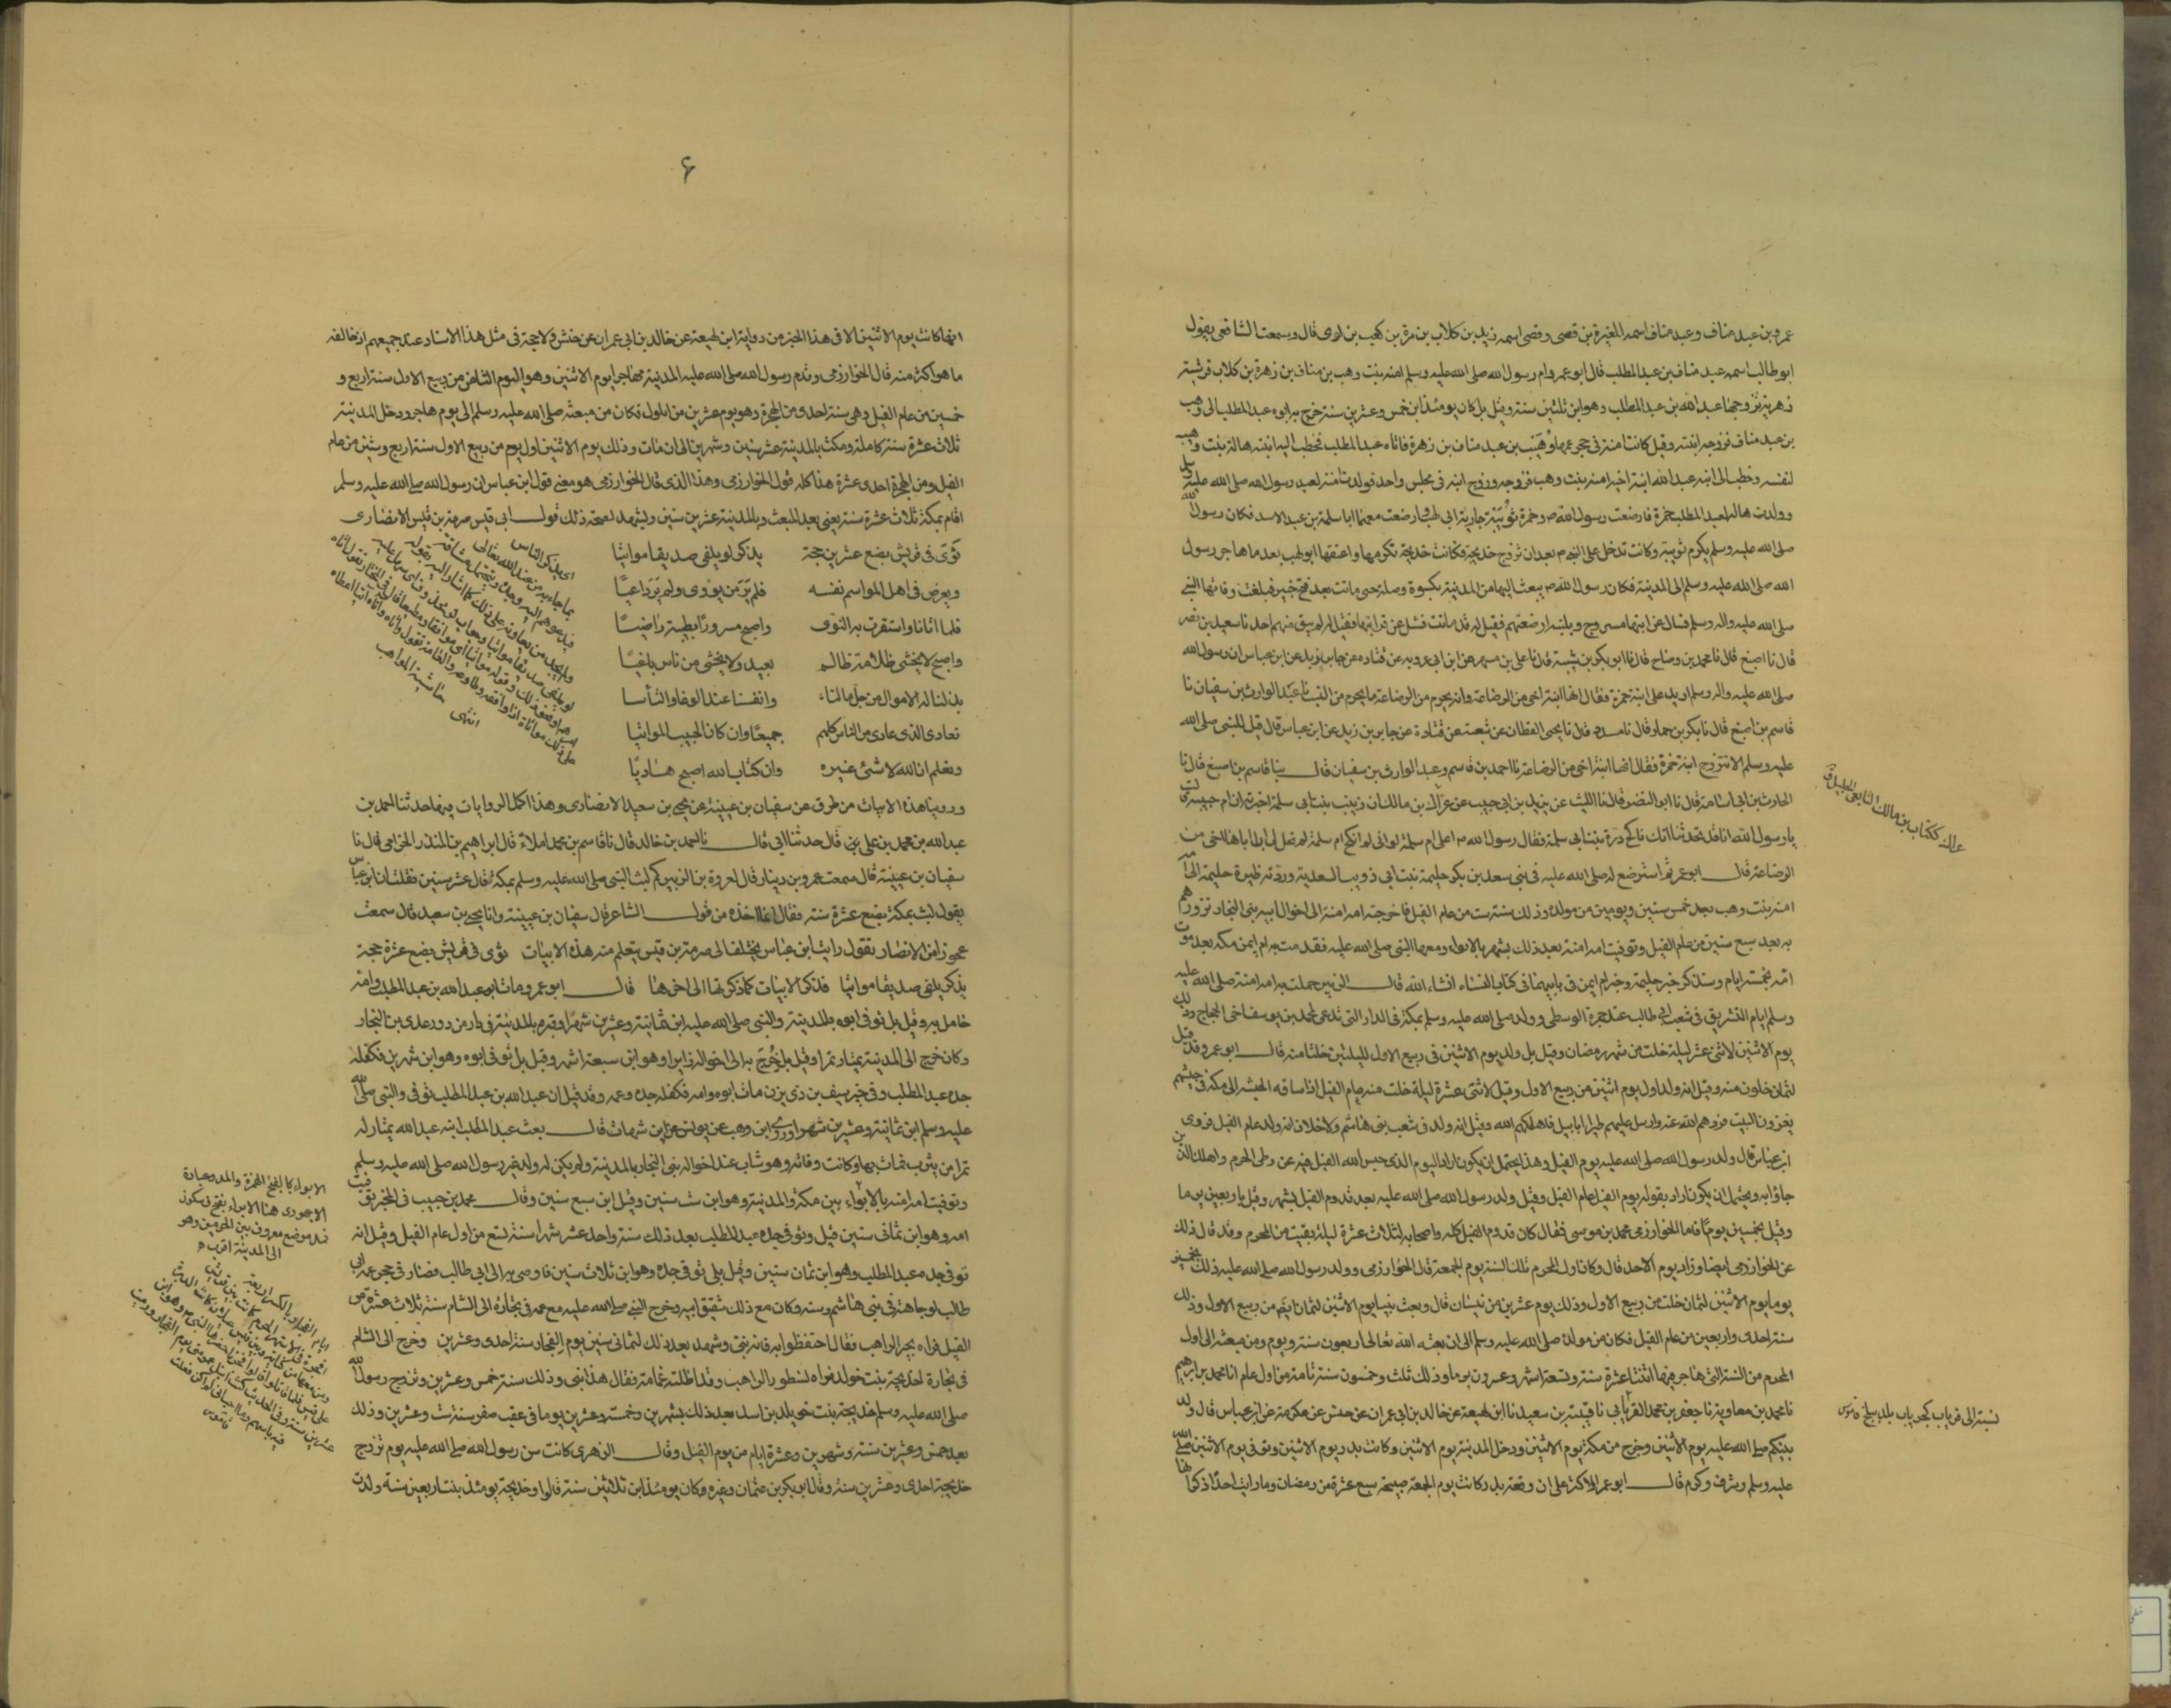 عمرو بن عبد مناف وعبد مناف اسمه المغيرة بن قصي وقصي اسمه زيد بن كلاب بن مرة بن كعب بن لوى قال وسمعت الشافعي يقول
ابو طالب اسمه عبد مناف بن عبد المطلب قال ابو عمر وام رسول الله صلى الله عليه وسلم امنه بنت وهب بن مناف بن زهرة بن كلاب قرشية
زهرية تزوجها عبد الله بن عبد المطلب وهو ابن ثلثين سنة وقيل بل كان يومئذ ابن خمس وعشرين سنة خرج به ابوه عبد المطلب الى وهب
بن عبد مناف فزوجه ابنته وقيل كانت امنة فى حجر عمها وهيب بن عبد مناف بن زهرة فاتاه عبد المطلب فخطب اليه ابنته هالة بنت وهيب
لنفسه وخطب الى ابنه عبد الله ابنة اخيه امنة بنت وهب فزوجه وزوج ابنه فى مجلس واحد فولدت امنة لعبد رسول الله صلى الله عليه وسلم
وولدت هاله لعبد المطلب حمزة فارضعت رسول الله ص وحمزة ثويبة جارية ابى لهب وارضعت معهما ابا سلمة بن عبد الاسد فكان رسول الله
صلى الله عليه وسلم يكرم ثويبة وكانت تدخل على النبى ص بعد ان تزوج خديجة فكانت خديجة تكرمها واعتقها ابو لهب بعد ما هاجر رسول
الله صلى الله عليه وسلم الى المدينة فكان رسول الله ص يبعث اليها من المدينة بكسوة وصلة حتى ماتت بعد فتح خيبر فبلغت وفاتها النبي
صلى الله عليه واله وسلم فسال عن ابنها مسروح وبلبنه ارضعتهم فقيل له قد مات فسئل عن قرابتها فقيل له لم يبق منهم احد نا سعيد بن نصر
قال نا اصبغ قال نا محمد بن وضاح قال نا ابو بكر بن شيبة قال نا على بن مسهر عن ابن ابى عروبه عن قتاده عن جابر بن زيد عن ابن عباس ان رسول الله
صلى الله عليه واله وسلم اريد على ابنة حمزة فقال انها ابنة اخى من الرضاعة وانه يحرم من الرضاعة ما يحرم من النسب نا عبد الوارث بن سفيان نا
قاسم بن اصبغ قال نا بكر بن حماد قال نا مسدد قال نا يحيى القطان عن شعبة عن قتادة عن جابر بن زيد عن ابن عباس قال قيل للنبى صلى الله
عليه وسلم الا تتزوج ابنة حمزة فقال انها ابنة اخى من الرضاعة نا احمد بن قاسم وعبد الوارث بن سفيان قال بينا قاسم بن اصبغ قال نا
الحارث بن ابى اسامة قال نا ابو النضر قال نا الليث عن يزيد بن ابى حبيب عن عراك بن مالك ان زينب بنت ابى سلمة اخبرته ان ام حبيبة قالت
يا رسول الله انا قد تحدثنا انك ناكح درة بنت ابى سلمة فقال رسول الله ص اعلى ام سلمة لو انى لم انكح ام سلمة لم تحل لى ان اباها اخى من
الرضاعة قال ابو عمر ثم استرضع له صلى الله عليه فى بنى سعد بن بكر حليمة بنت ابى ذويب السعدية وردته ظيره حليمة الى امه
امنه بنت وهب بعد خمس سنين ويومين من مولده وذلك سنة ست من عام الفيل فاخرجته امه امنة الى اخوال ابيه بنى النجار تزورهم
به بعد سبع سنين من عام الفيل وتوفيت امه امنة بعد ذلك بشهر بالابواء ومعها النبى صلى الله عليه فقدمت به ام ايمن مكه بعد موت
امه بخمسة ايام وسنذكر خبر حليمة وخبر ام ايمن فى بابيهما فى كتاب النساء انشاء الله قال الزبير حملت به امه امنة صلى الله عليه
وسلم ايام التشريق فى شعب ابى طالب عند جمرة الوسطى وولد صلى الله عليه وسلم بمكة فى الدار التى تدعى لمحمد بن يوسف اخى الحجاج وذلك
يوم الاثنين لاثنى عشر ليلة خلت من شهر رمضان وقيل بل ولد يوم الاثنين فى ربيع الاول لليلتين خلتا منه قال ابو عمر وقد قيل
لثمان خلون منه وقيل انه ولد اول يوم اثنين من ربيع الاول وقيل لاثنى عشرة ليلة خلت منه عام الفيل اذ ساقه الحبشه الى مكه فى جيشهم
يغزون البيت فردهم الله عنه وارسل عليهم طيرا ابابيل فاهلكهم الله وقيل انه ولد فى شعب بنى هاشم ولا خلاف انه ولد عام الفيل فروى
ابن عباس قال ولد رسول الله صلى الله عليه يوم الفيل وهذا يحتمل ان يكون اراد اليوم الذى حبس الله الفيل فيه عن وطى الحرم واهلك الذين
جاؤا به ويحتمل ان يكون اراد بقوله يوم الفيل عام الفيل وقيل ولد رسول الله صلى الله عليه بعد قدوم الفيل بشهر وقيل باربعين يوما
وقيل بخمسين يوما فاما الخوارزمى محمد بن موسى فقال كان قدوم الفيل مكه واصحابه لثلاث عشرة ليلة بقيت من المحرم وقد قال ذلك
عن الخوارزمى ايضا وزاد يوم الاحد قال وكان اول المحرم تلك السنة يوم الجمعة قال الخوارزمى وولد رسول الله صلى الله عليه ذلك بخمسين
يوما يوم الاثنين لثمان خلت من ربيع الاول وذلك يوم عشرين من نيسان قال وبعث نبيا يوم الاثنين لثمان ايضا من ربيع الاول وذلك
سنة احدى واربعين من عام الفيل فكان من مولده صلى الله عليه وسلم الى ان بعثه الله تعالى اربعون سنة ويوم ومن مبعثه الى اول
المحرم من السنة التى هاجر فيها اثنتا عشرة سنة وتسعة اشهر وعشرون يوما وذلك ثلث وخمسون سنة تامة من اول عام انا محمد بن ابراهيم
نا محمد بن معاوية نا جعفر بن محمد الفريابى نا قتيبة بن سعيد نا ابن لهيعة عن خالد بن ابى عمران عن حنش عن عكرمة عن ابن عباس قال ولد
نبيكم صلى الله عليه يوم الاثنين وخرج من مكة يوم الاثنين ودخل المدينة يوم الاثنين وكانت بدر يوم الاثنين وتوفى يوم الاثنين صلى الله
عليه وسلم وشرف وكرم قال ابو عمر الاكثر على ان وقعة بدر كانت يوم الجمعة صبيحة سبع عشرة من رمضان وما رايت احدا ذكر
عراك ككتاب بن مالك التابعى الجليل ق
نسبة الى فرياب كجرياب بلد ببلخ قاموس
۶
انها كانت يوم الاثنين الا فى هذا الخبر من رواية ابن لهيعة عن خالد بن ابى عمران عن حنش ولا حجة فى مثل هذا الاسناد عند جميعهم اذ خالفه
ما هو اكثر منه قال الخوارزمى وقدم رسول الله صلى الله عليه المدينة مهاجرا يوم الاثنين وهو اليوم الثامن من ربيع الاول سنة اربع و
خمسين من عام الفيل وهى سنة احدى من الهجرة وهو يوم عشرين من ايلول فكان من مبعثه صلى الله عليه وسلم الى يوم هاجر ودخل المدينة
ثلاث عشرة سنة كاملة ومكث بالمدينة عشر سنين وشهرين الى ان مات وذلك يوم الاثنين اول يوم من ربيع الاول سنة اربع وستين من عام
الفيل ومن الهجرة احدى عشرة هذا كله قول الخوارزمى وهذا الذى قال الخوارزمى هو معنى قول ابن عباس ان رسول الله صلى الله عليه وسلم
اقام بمكة ثلاث عشرة سنة يعنى بعد المبعث وبالمدينة عشر سنين ويشهد لصحة ذلك قول ابى قيس صرمة بن قيس الانصارى
ثوى فى قريش بضع عشرين حجة يذكر لو يلقى صديقا مواتيا
ويعرض فى اهل المواسم نفسه فلم ير من يؤوى ولم ير داعيا
فلما اتانا واستقرت به النوى واصبح مسرورا بطيبة راضيا
واصبح لا يخشى ظلامة ظالم بعيد ولا يخشى من ناس باغيا
بذلنا له الاموال من جل مالنا وانفسنا عند الوغا والتأسا
نعادى الذى عادى من الناس كلهم جميعا وان كان الحبيب المواتيا
ونعلم ان الله لا شئ غيره وان كتاب الله اصبح هاديا
وروينا هذه الابيات من طرق عن سفيان بن عيينة عن يحيى بن سعيد الانصارى وهذا اكمل الروايات فيها حدثنا احمد بن
عبد الله بن محمد بن على بن قال حدثنا ابى قال نا احمد بن خالد قال نا قاسم بن محمد املاء قال ابراهيم بن المنذر الحزامى قال نا
سفيان بن عيينة قال سمعت عمرو بن دينار قال لعروة بن الزبير كم لبث النبى صلى الله عليه وسلم بمكة قال عشر سنين فقلت ان ابن عباس
يقول لبث بمكة بضع عشرة سنة فقال انما اخذه من قول الشاعر قال سفيان بن عيينة وانا يحيى بن سعيد قال سمعت
عجوزا من الانصار تقول رايت ابن عباس يختلف الى صرمة بن قيس يتعلم منه هذه الابيات ثوى فى قريش بضع عشرة حجة
يذكر يلقى صديقا مواتيا فذكر الابيات كما ذكرتها الى اخرها قال ابو عمر ومات ابوه عبد الله بن عبد المطلب وامه
حامل به وقيل بل توفى ابوه بالمدينة والنبى صلى الله عليه ابن ثمانية وعشرين شهرا وقبره بالمدينة فى دار من دور عدى بن النجار
وكان خرج الى المدينة يمتار تمرا وقيل بل خرج به الى اخواله زايرا وهو ابن سبعة اشهر وقيل بل توفى ابوه وهو ابن شهرين فكفله
جده عبد المطلب وفى خبر سيف بن ذى يزن مات ابوه وامه فكفله جده وعمه وقد قيل ان عبد الله بن عبد المطلب توفى والنبى صلى الله
عليه وسلم ابن ثمانية وعشرين شهرا وروى ابن وهب عن يونس عن ابن شهاب قال بعث عبد المطلب ابنه عبد الله يمتار له
تمرا من يثرب فمات بها وكانت وفاته وهو شاب عند اخواله بنى النجار بالمدينة ولم يكن له ولد غير رسول الله صلى الله عليه وسلم
وتوفيت امه امنه بالابواء بين مكة والمدينة وهو ابن ست سنين وقيل ابن سبع سنين وقال محمد بن حبيب فى المحبر توفيت
امه وهو ابن ثمانى سنين قيل وتوفى جده عبد المطلب بعد ذلك سنة واحد عشر شهرا سنة تسع من اول عام الفيل وقيل انه
توفى جده عبد المطلب وهو ابن ثمان سنين وقيل بلى توفى جده وهو ابن ثلاث سنين فاوصى به الى ابى طالب فصار فى حجر عمه ابى
طالب لوجاهته فى بنى هاشم وسنه وكان مع ذلك شقيق ابيه وخرج النبى صلى الله عليه مع عمه فى تجارة الى الشام سنة ثلاث عشرة من
الفيل فراه بحير الراهب فقال احتفظوا به فانه نبى وشهد بعد ذلك لثمانى سنين يوم الفجار سنة احدى وعشرين وخرج الى الشام
فى تجارة لخديجة بنت خويلد فراه نسطور الراهب وقد اظلته غمامة فقال هذا نبى وذلك سنة خمس وعشرين وتزوج رسول الله
صلى الله عليه وسلم خديجة بنت خويلد بن اسد بعد ذلك بشهرين وخمسة وعشرين يوما فى عقب صفر سنة ست وعشرين وذلك
بعد خمس وعشرين سنة وشهرين وعشرة ايام من يوم الفيل وقال الزهرى كانت سن رسول الله صلى الله عليه يوم تزوج
خديجة احدى وعشرين سنة وقال ابو بكر بن عثمان وغيره وكان يومئذ ابن ثلاثين سنة قالوا وخديجة يومئذ بنت اربعين سنة ولدت
اى يذكر الناس
بما جاء به من عند الله تعالى
حاشية المواهب
انتهى
الابواء بالفتح الهمزة والمد وعبارة
الاجهورى هنا الابواء بفتح فسكون
فمد موضع معروف بين الحرمين وهو
الى المدينة اقرب
قاموس